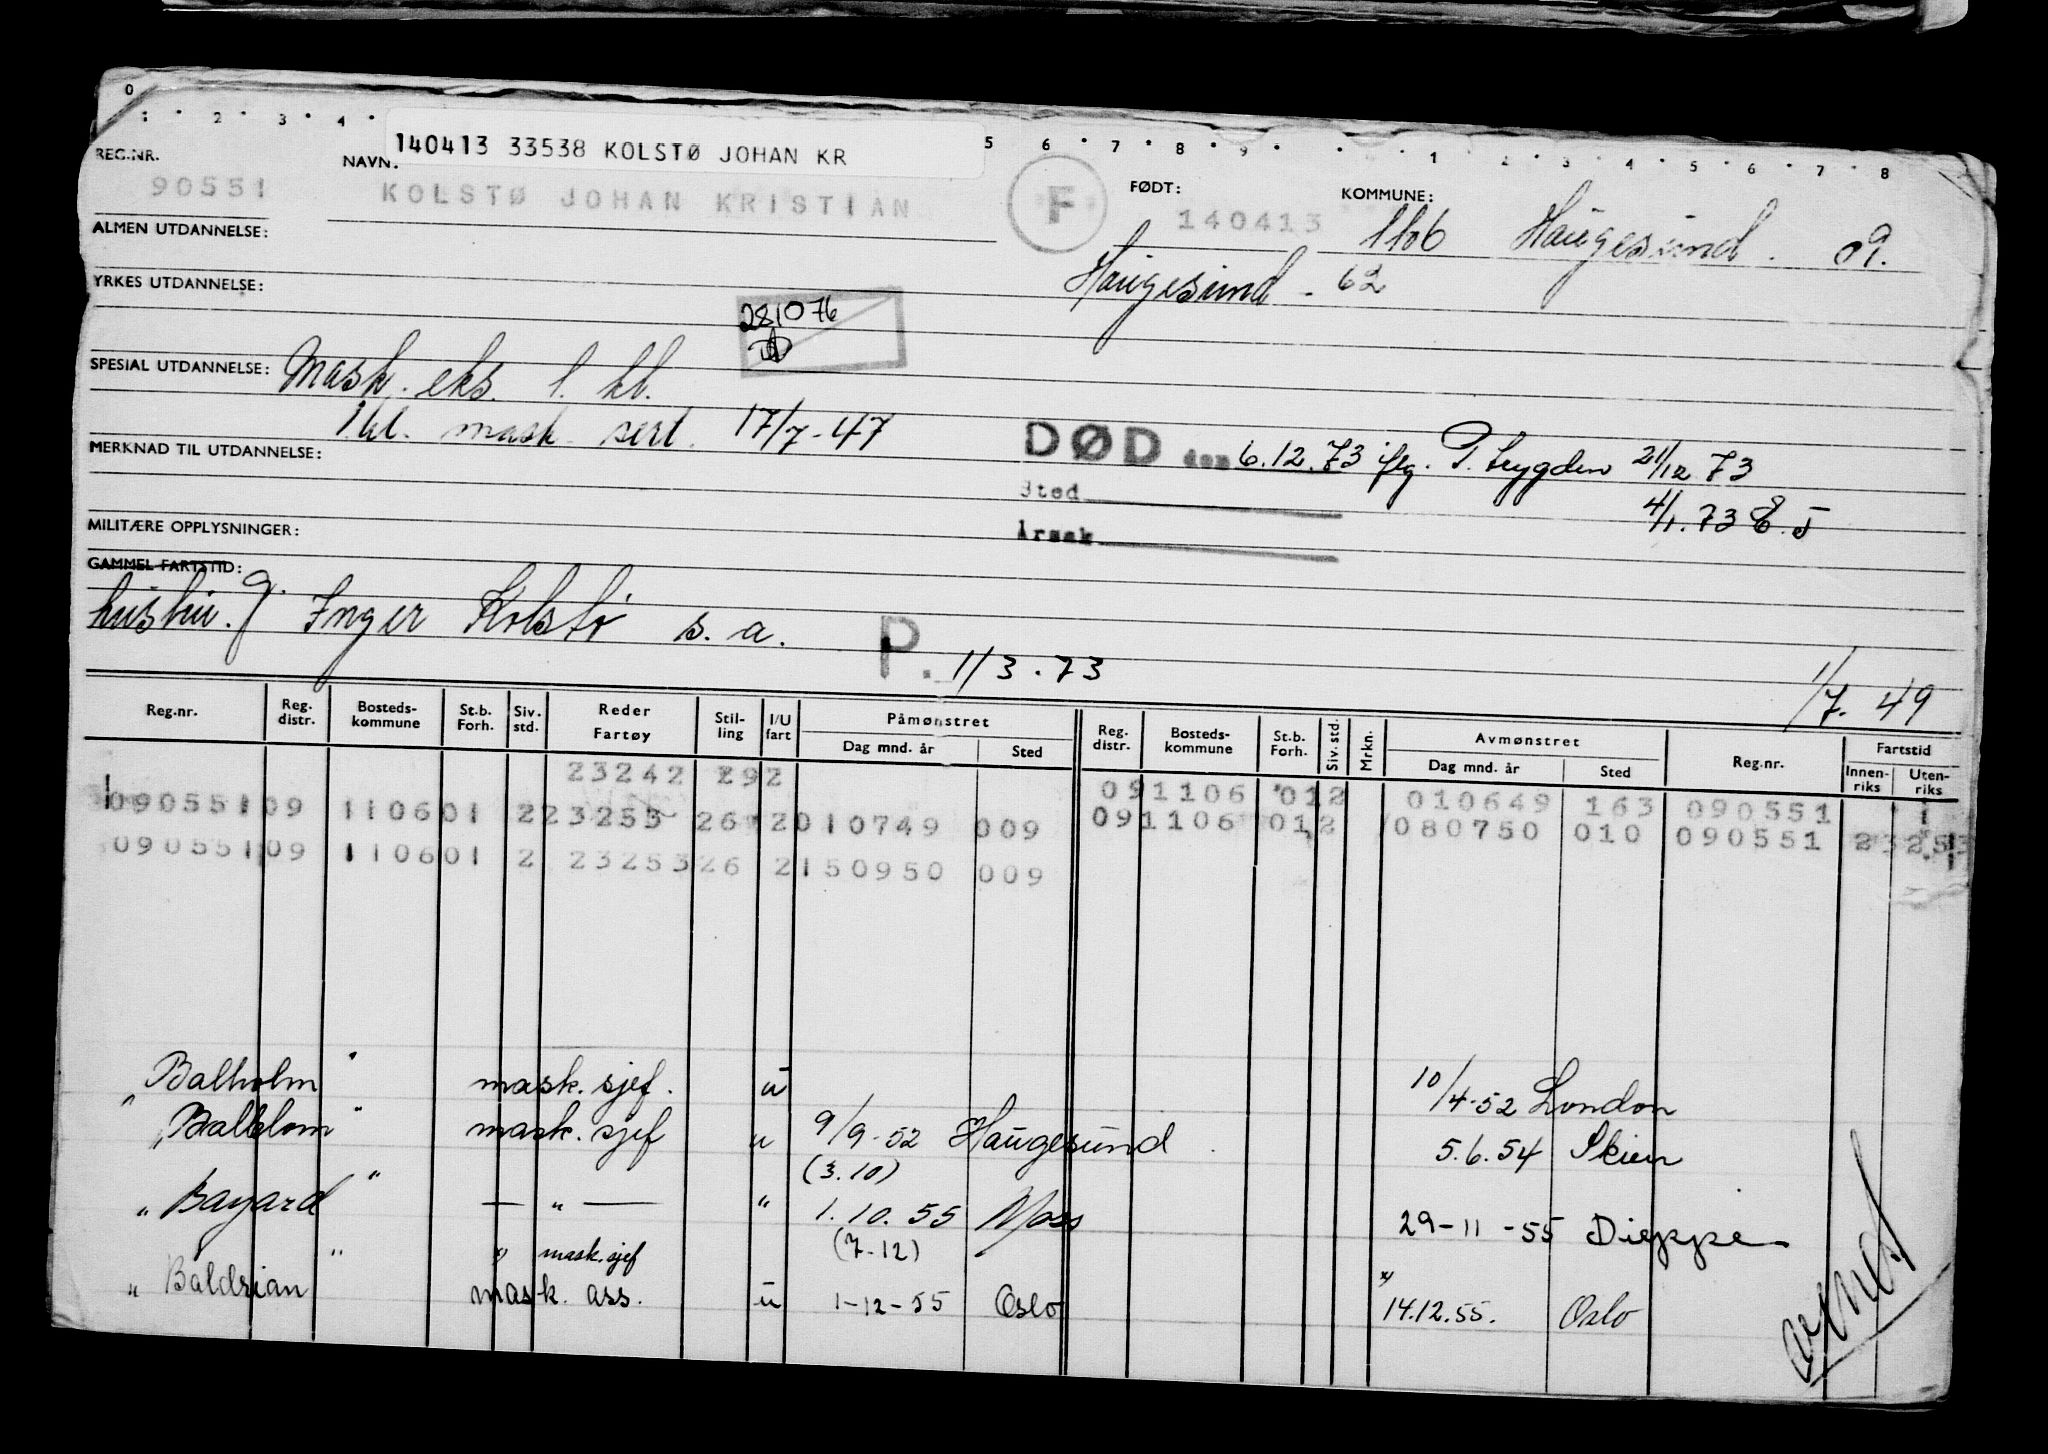 0
1 · 2 · 3 · 4 · 5 6 · 7 · 8 · 9 · · · 1 · 2 · 3 · 4 · 5 · 6 · 7 · 8
140413 33538 KOLSTØ JOHAN KR
REG.NR. NAVN. FØDT: KOMMUNE:
90551 KOLSTØ JOHAN KRISTIAN F 140413 1106 Haugesund. 09.
ALMEN UTDANNELSE: Haugesund - 62
YRKES UTDANNELSE:
281076
SPESIAL UTDANNELSE: Mask. eks. 1. kl.
1 kl. mask. sert. 17/7-47
MERKNAD TIL UTDANNELSE:
DØD den 6.12.73 iflg. P. trygden 21/12 73
Sted 4/1.73 E.J
Årsak
MILITÆRE OPPLYSNINGER:
GAMMEL FARTSTID:
hustru. g. Inger Kolstø s. a. P. 1/3.73
1/7. 49
Reg.nr. Reg. distr. Bosteds-kommune St.b. Forh. Siv. std. Reder Fartøy Stil-ling I/U fart Påmønstret Dag mnd. år Sted Reg. distr. Bosteds-kommune St.b. Forh. Siv. std. Mrkn. Avmønstret Dag mnd. år Sted Reg.nr. Fartstid Innen-riks Uten-riks
23242 292 091106 012 010649 163 090551
090551 09 1106 01 2 23253 26 2 010749 009 091106 012 080750 010 090551
090551 09 1106 01 2 23253 26 2 150950 009
Balholm " mask. sjef. u 10/4-52 London
" Balblom " mask. sjef u 9/9-52 Haugesund 5.6.54 Skien
(3.10)
" Bayard " — " — " 1.10.55 Moss 29-11-55 Dieppe
(7-12)
" mask. sjef
" Baldrian mask. ass. u 1-12-55 Oslo 14.12.55. Oslo